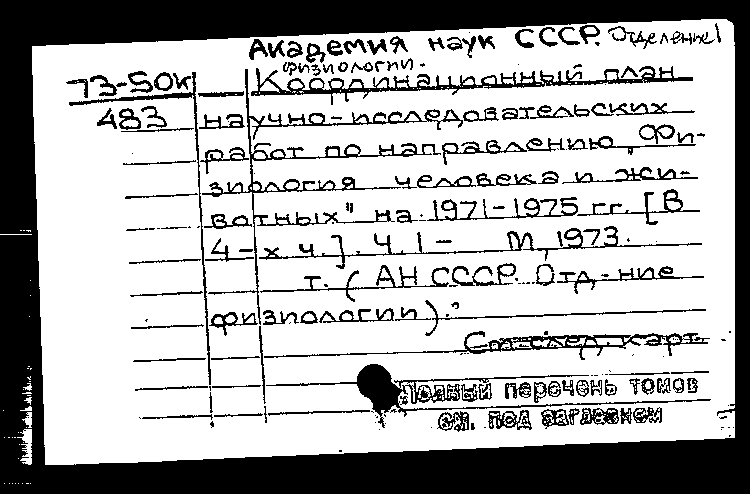 Академия наук СССР. Отделение
физиологии.
73-50к Координационный план
483 научно-исследовательских
работ по направлению „Фи-
зиология человека и жи-
вотных" на 1971-1975 гг. [В
4-х ч.]. Ч. 1 - М, 1973.
т. (АН СССР. Отд-ние
физиологии).
См. след. карт.
Полный перечень томов
см. под заглавием